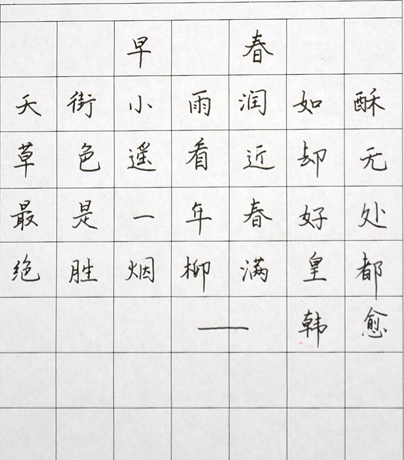 早春
天街小雨润如酥
草色遥看近却无
最是一年春好处
绝胜烟柳满皇都
——韩愈